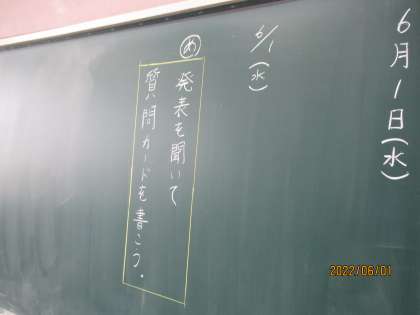 6月1日(水)
6/1(水)
め
発表を聞いて
質問カードを書こう。
2022/06/01